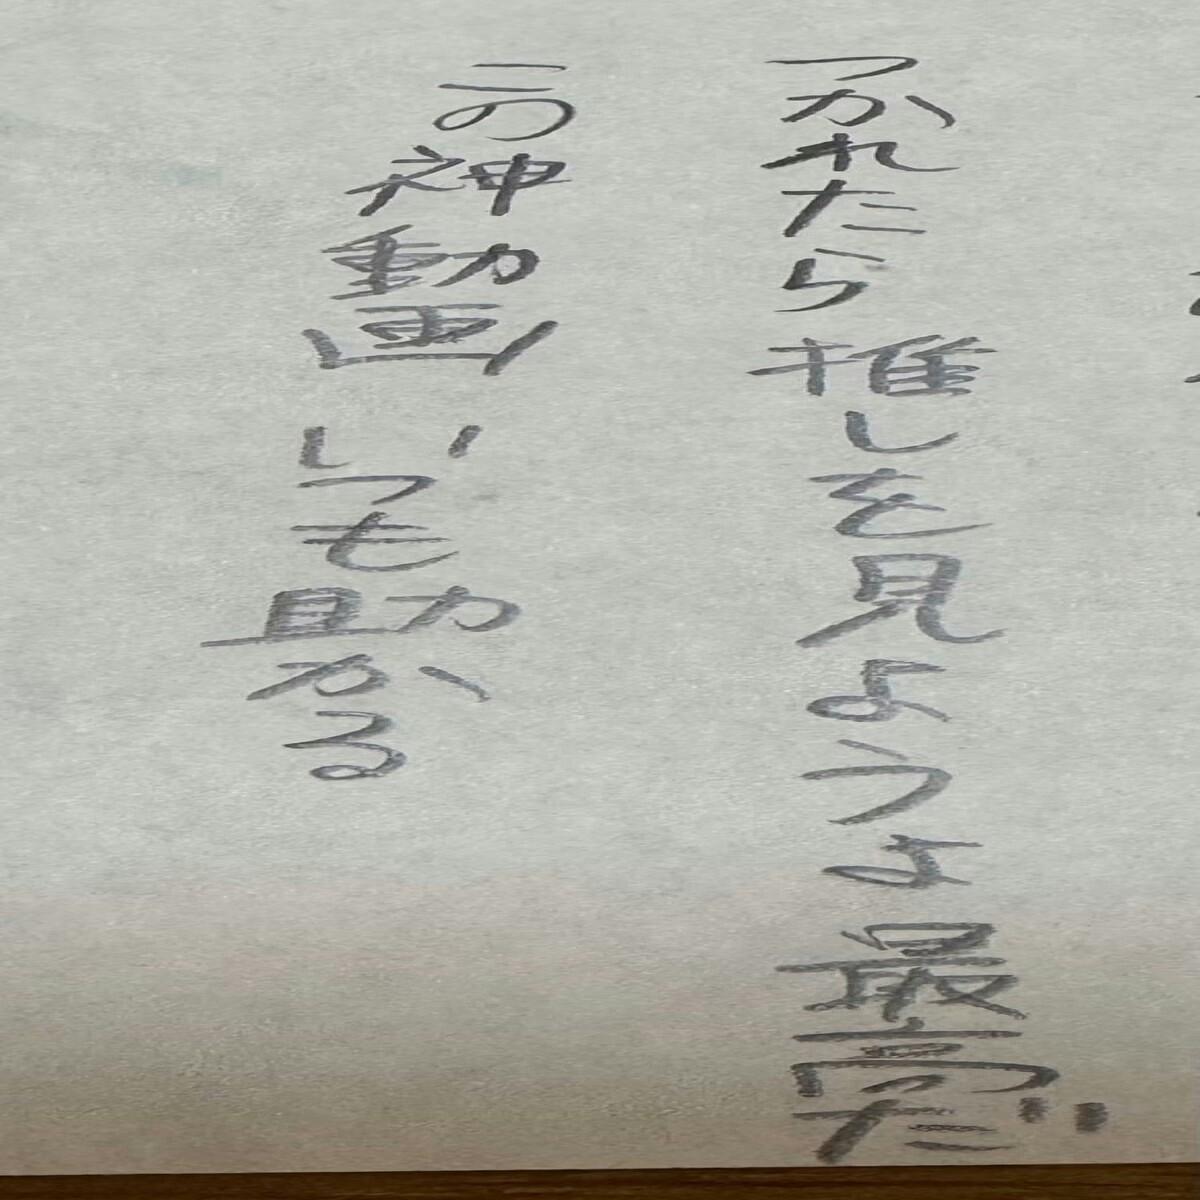 つかれたら推しを見ようよ最高だ
この神動画いつも助かる